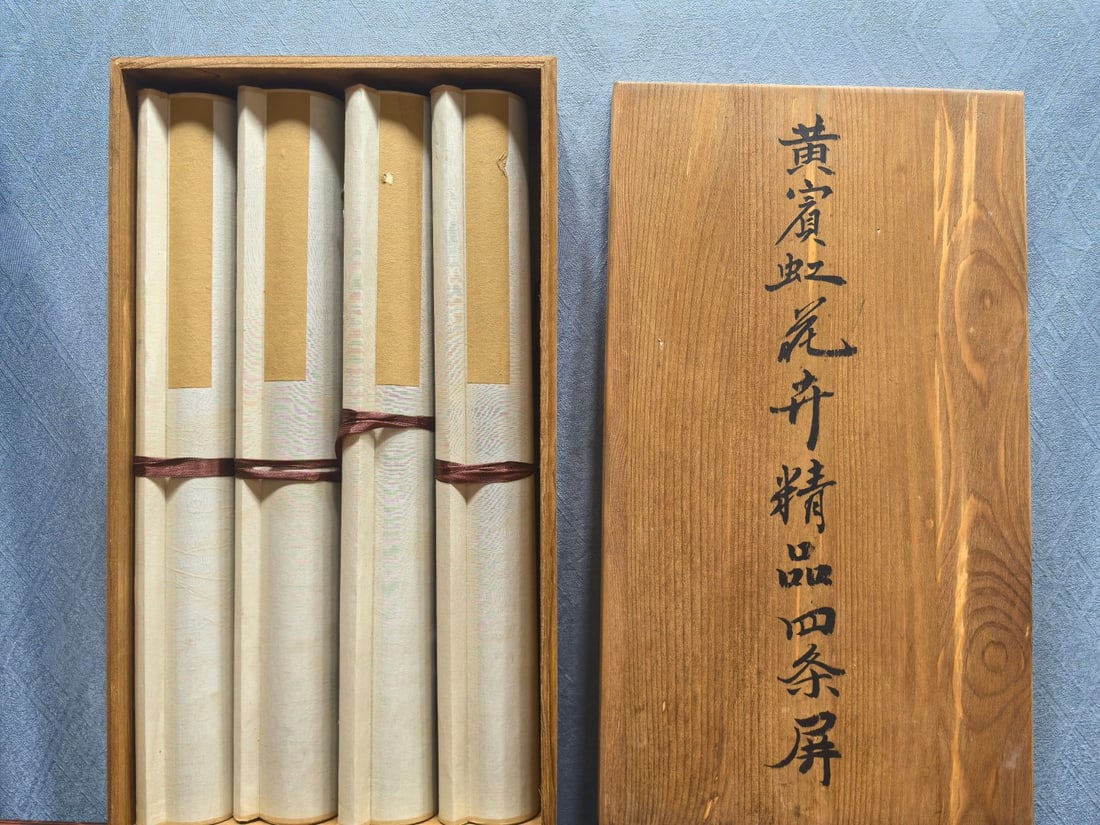 黄賓虹花卉精品四条屏